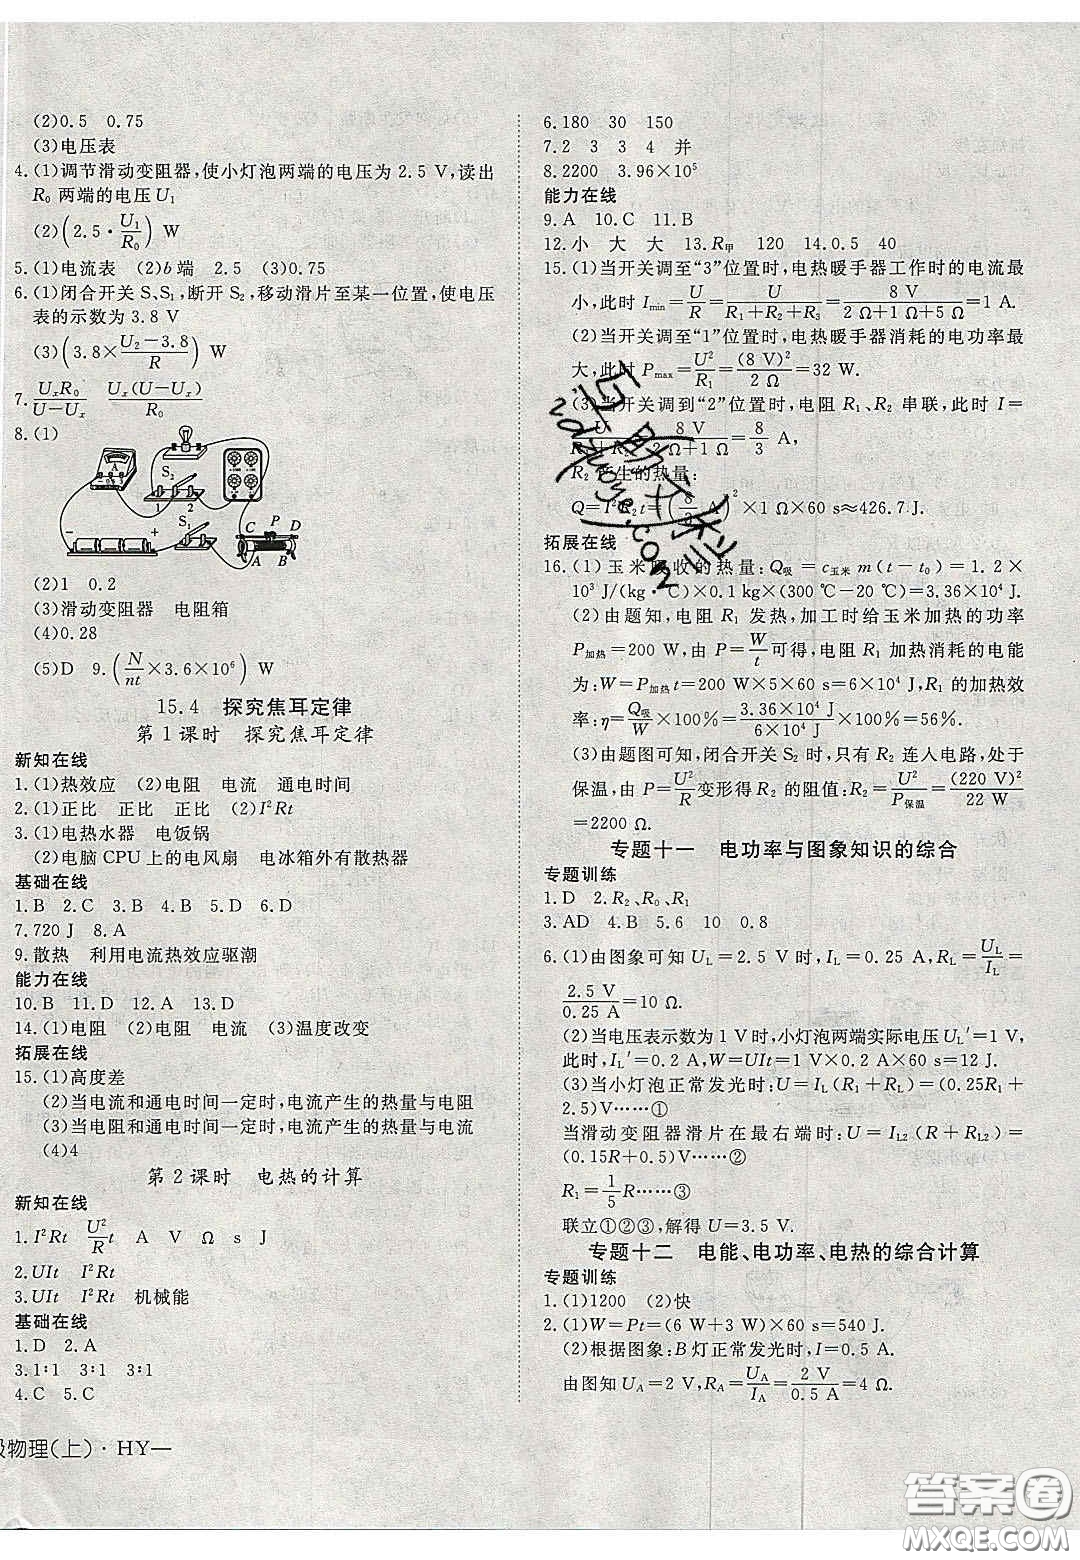 (2)0.5 0.75
(3)电压表
4.(1)调节滑动变阻器,使小灯泡两端的电压为2.5 V,读出
R₀ 两端的电压U₁
(2)(2.5·U₁/R₀) W
5.(1)电流表 (2)b端 2.5 (3)0.75
6.(1)闭合开关S、S₁,断开S₂,移动滑片至某一位置,使电压
表的示数为3.8 V
(3)(3.8×(U₂-3.8)/R) W
7. UₓR₀/(U-Uₓ) Uₓ(U-Uₓ)/R₀
8.(1)
A
S₂
1 2
S₁
- +
C P D
A B
(2)1 0.2
(3)滑动变阻器 电阻箱
(4)0.28
(5)D 9.(N/nt×3.6×10⁶) W
15.4 探究焦耳定律
第1课时 探究焦耳定律
新知在线
1.(1)热效应 (2)电阻 电流 通电时间
2.(1)正比 正比 正比 (2)I²Rt
3.(1)电热水器 电饭锅
(2)电脑CPU上的电风扇 电冰箱外有散热器
基础在线
1.B 2.C 3.B 4.B 5.B 6.D
7.720 J 8.A
9.散热 利用电流热效应驱潮
能力在线
10.B 11.D 12.A 13.D
14.(1)电阻 (2)电阻 电流 (3)温度改变
拓展在线
15.(1)高度差
(2)当电流和通电时间一定时,电流产生的热量与电阻
(3)当电阻和通电时间一定时,电流产生的热量与电流
(4)4
第2课时 电热的计算
新知在线
1.I²Rt U²/R t A V Ω s J
2.UIt I²Rt
3.UIt I²Rt 机械能
基础在线
1.D 2.A
3.1∶1 3∶1 3∶1
4.C 5.C
级物理(上)·HY—
6.180 30 150
7.2 3 3 4 并
8.2200 3.96×10⁵
能力在线
9.A 10.C 11.B
12.小 大 大 13.R甲 120 14.0.5 40
15.(1)当开关调至“3”位置时,电热暖手器工作时的电流最
小,此时I_min=U/R=U/(R₁+R₂+R₃)=8 V/(2 Ω+1 Ω+5 Ω)=1 A.
(2)当开关调至“1”位置时,电热暖手器消耗的电功率最
大,此时P_max=U²/R₁=(8 V)²/2 Ω=32 W.
(3)当开关调到“2”位置时,电阻R₁、R₂串联,此时I=
U/(R₁+R₂)=8 V/(2 Ω+1 Ω)=8/3 A,
R₂产生的热量:
Q=I²R₂t=(8/3 A)²×1 Ω×60 s≈426.7 J.
拓展在线
16.(1)玉米吸收的热量:Q吸=c玉米m(t-t₀)=1.2×
10³ J/(kg·℃)×0.1 kg×(300 ℃-20 ℃)=3.36×10⁴ J.
(2)由题知,电阻R₁发热,加工时给玉米加热的功率
P加热=200 W,由P=W/t可得,电阻R₁加热消耗的电能
为:W=P加热t=200 W×5×60 s=6×10⁴ J,R₁的加热效
率:η=Q吸/W×100%=3.36×10⁴ J/6×10⁴ J×100%=56%.
(3)由题图可知,闭合开关S₂时,只有R₂连入电路,处于
保温,由P=U²/R变形得R₂的阻值:R₂=U²/P保温=(220 V)²/22 W
=2200 Ω.
专题十一 电功率与图象知识的综合
专题训练
1.D 2.R₂、R₀、R₁
3.AD 4.B 5.6 10 0.8
6.(1)由图象可知U_L=2.5 V时,I_L=0.25 A,R_L=U_L/I_L=
2.5 V/0.25 A=10 Ω.
(2)当电压表示数为1 V时,小灯泡两端实际电压U_L′=1 V,
此时,I_L′=0.2 A,W=UIt=1 V×0.2 A×60 s=12 J.
(3)当小灯泡正常发光时:U=I_L(R₁+R_L)=(0.25R₁+
2.5)V……①
当滑动变阻器滑片在最右端时:U=I_L2(R+R_L2)=
(0.15R+0.5)V……②
R₁=1/5 R……③
联立①②③,解得U=3.5 V.
专题十二 电能、电功率、电热的综合计算
专题训练
1.(1)1200 (2)快
2.(1)W=Pt=(6 W+3 W)×60 s=540 J.
(2)根据图象:B灯正常发光时,I=0.5 A.
由图知U_A=2 V,R_A=U_A/I_A=2 V/0.5 A=4 Ω.
答案圈
MXQE.COM